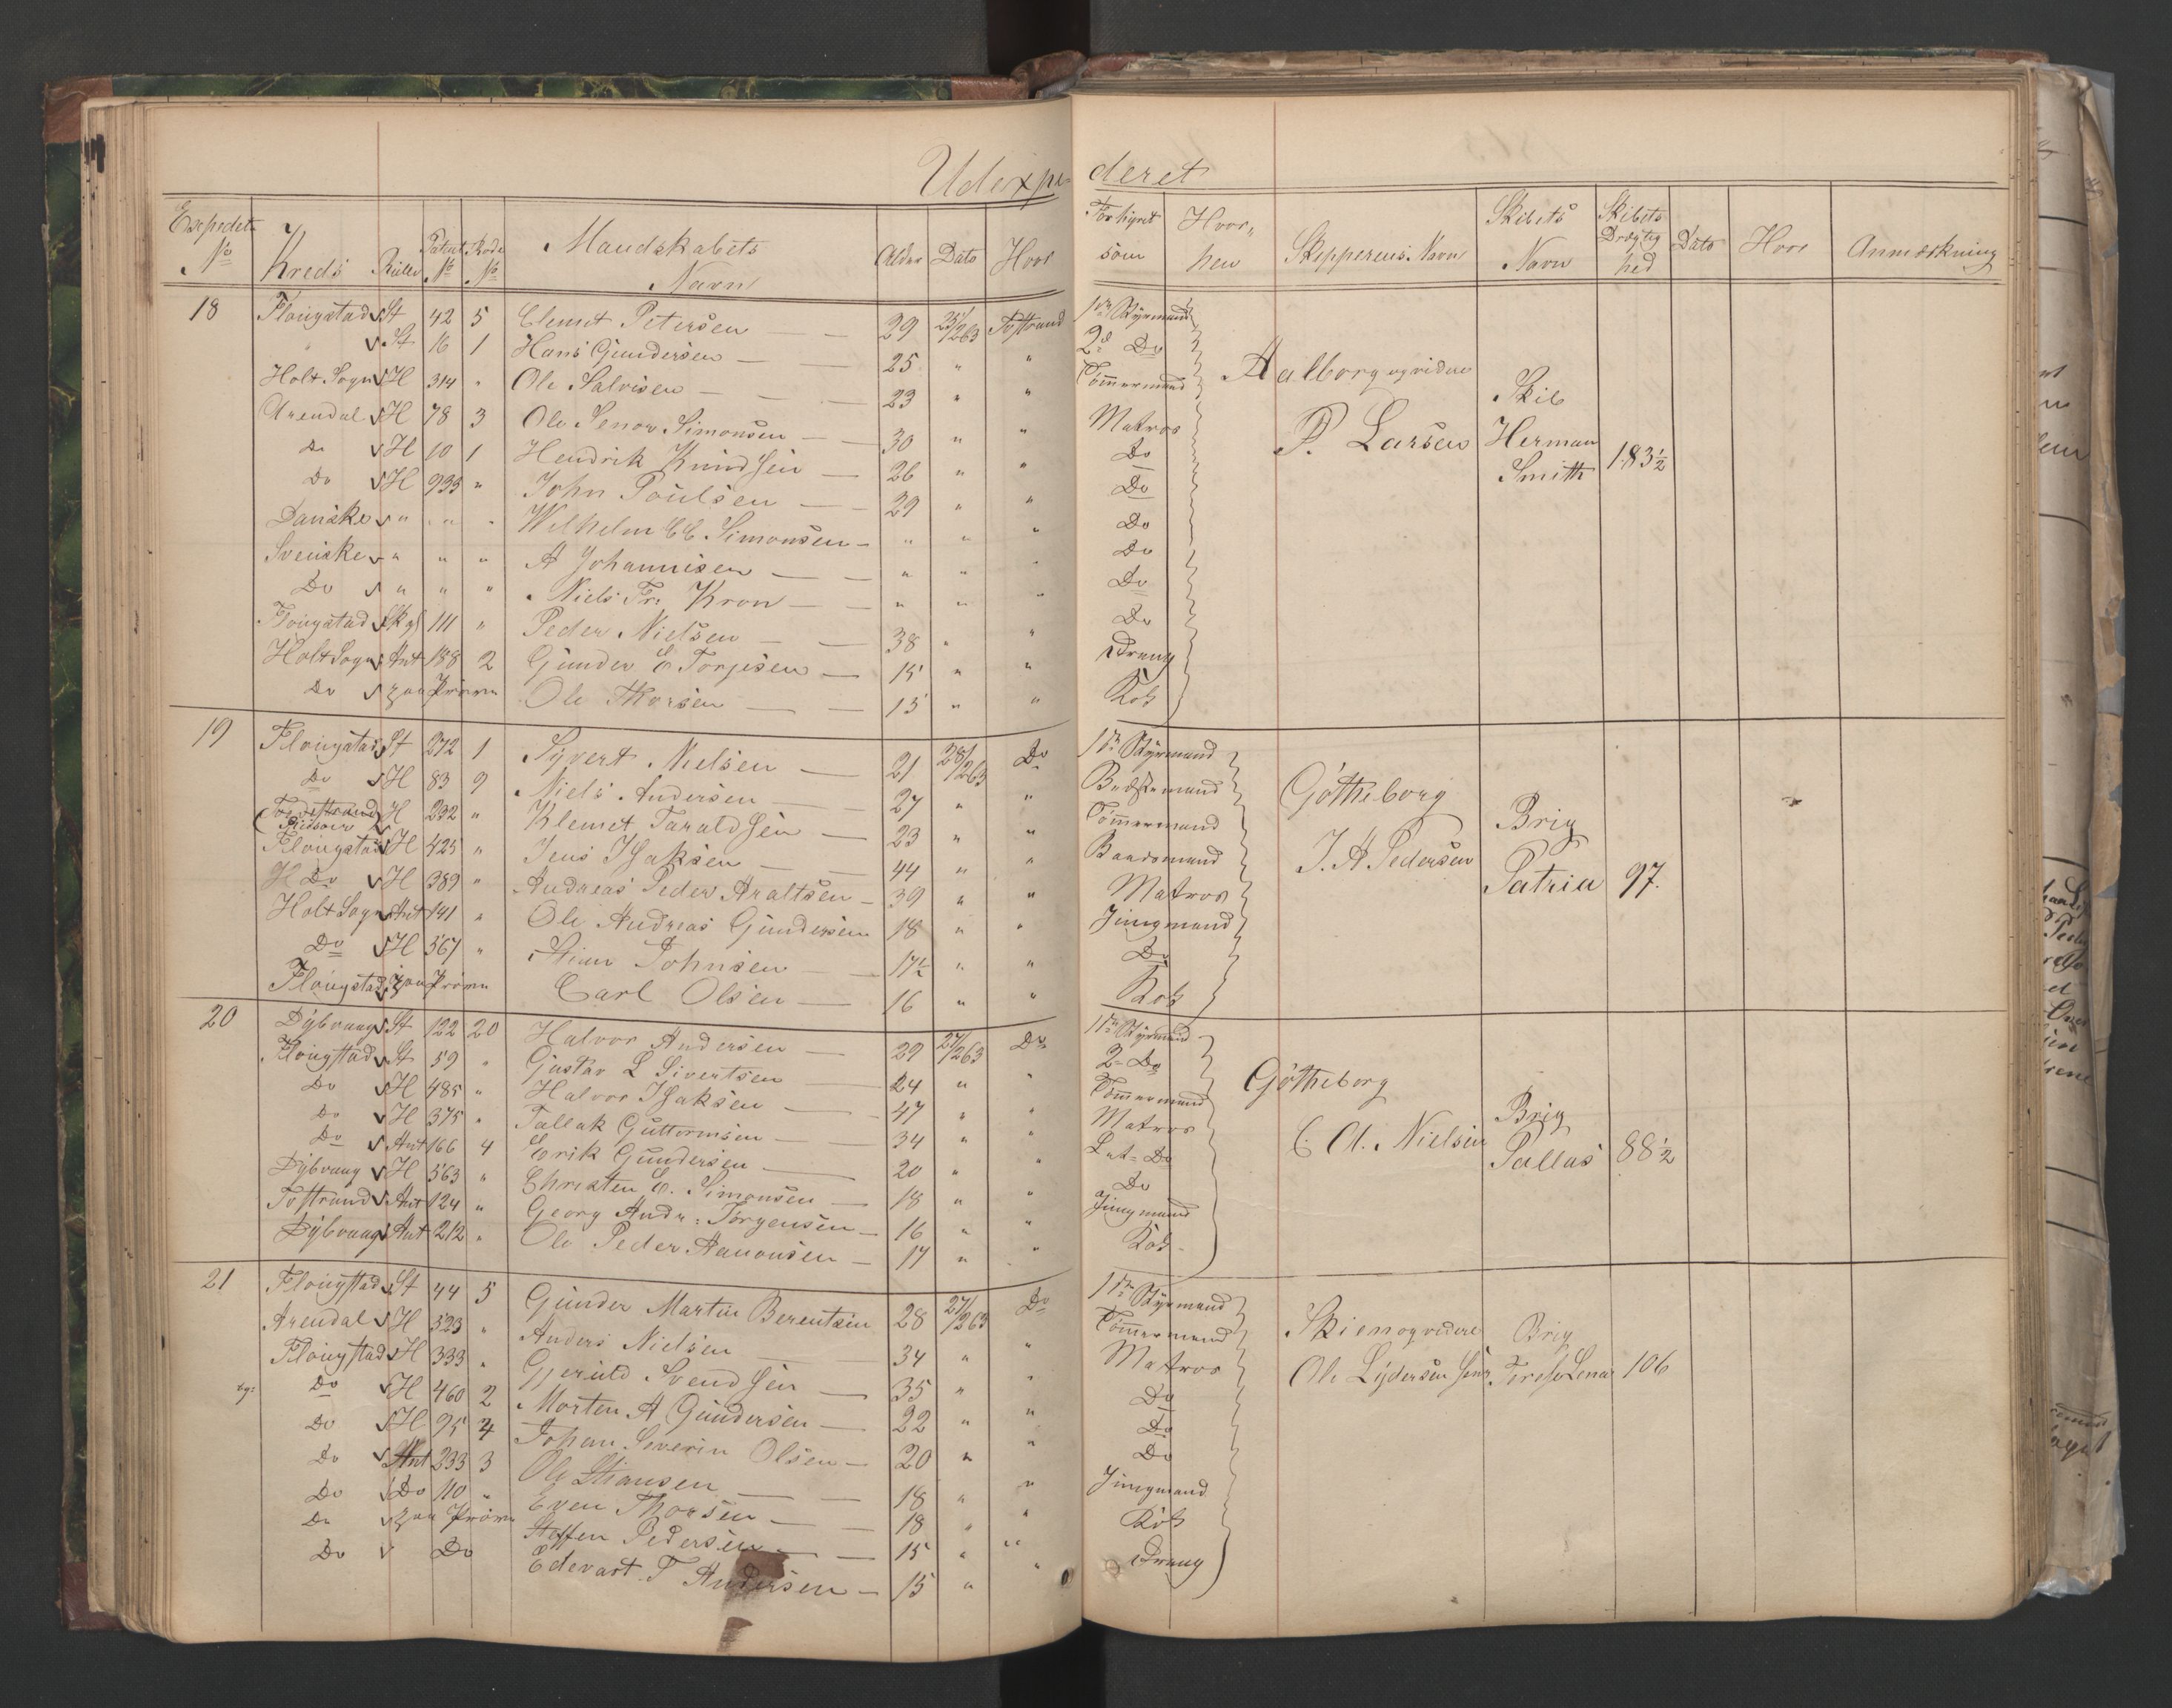 Udexpe- deret
Expedets No Kreds Rulle Patent No Rode No Mandskabets Navn Alder Dato Hvor Forhyret som Hvor, hen Skipperens Navn Skibets Navn Skibets Drægtighed Dato Hvor Anmærkning
18 Flougstad St 42 5 Clemet Petersen 29 25/2 63 Tostrand 1ste Styrmand
" St 16 1 Hans Gundersen 25 " " 2d Do
Holt Sogn H 314 " Ole Salvisen 23 " " Tömmermand Aalborg og videre
Arendal H 78 3 Ole Senov Simonsen 30 " " Matros Skib
Do H 10 1 Hendrik Knudsen 26 " " Do P. Larsen Herman
Do H 935 " John Poulsen 29 " " Do Smith 183½
Danske " " " Wilhelm CC. Simonsen " " " Do
Svenske " " " A Johannisen " " " Do
Do " " " Niels Fr. Kron " " " Do
Flougstad 111 " Peder Nielsen 38 " " Do
Holt Sogn Ant 188 2 Gunder E Torjesen 15 " " Dreng
Do Prövn Ole Thorsen 15 " " Kok
19 Flougstad St 272 1 Syvert Nielsen 21 28/2 63 Do 1ste Styrmand
Do H 83 9 Niels Andersen 27 " " Bedstemand Götheborg
H 232 " Klemet Taraldsen 23 " " Tömmermand Brig
Flougstad H 425 " Jens Isaksen 44 " " Baadsmand J. A. Pedersen
Do H 389 " Andreas Peder Araltsen 39 " " Matros Patria 97.
Holt Sogn Ant 141 " Ole Andreas Gundersen 18 " " Jungmand
Do H 567 " Stian Johnsen 17½ " " Do
Flougstad Prövn Carl Olsen 16 " " Kok
20 Dybvaag St 122 20 Halvor Andersen 29 27/2 63 Do 1ste Styrmand
Flougstad St 59 " Gustav L Sivertsen 24 " " 2 Do
Do H 485 " Halvor Isaksen 47 " " Tömmermand Götheborg
Do H 375 " Tallak Guttormsen 34 " " Matros Brig
Do Ant 166 4 Erik Gundersen 20 " " Let Do C. A. Nielsen Pallas 88½
Dybvaag H 563 " Christen E. Simonsen 18 " " Do
Tostrand Ant 124 " Georg Andr: Jörgensen 16 " " Jungmand
Dybvaag Ant 212 " Ole Peder Aanonsen 17 " " Kok
21 Flougstad St 44 5 Gunder Martin Berentsen 28 27/2 63 Do 1ste Styrmand
Arendal H 523 " Anders Nielsen 34 " " Tömmermand Skien og videre Brig
Flougstad H 333 " Gjeruld Svendsen 35 " " Matros Ole Lydersen Senr Terese Lena 106
Do H 460 2 Morten A Gundersen 22 " " Do
Do H 95 4 Johan Severin Olsen 20 " " Do
Do Ant 233 3 Ole Stiansen 18 " " Do
Do Do 110 " Even Thorsen 18 " " Jungmand
Do Prövn Steffen Pedersen 15 " " Kok
Do Do Edevart T Andersen 15 " " Dreng